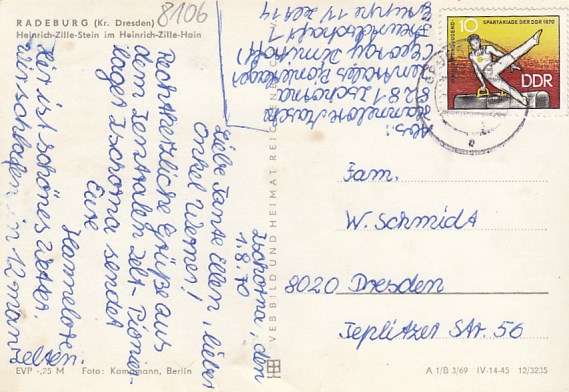 RADEBURG (Kr. Dresden)
Heinrich-Zille-Stein im Heinrich-Zille-Hain
8106
Abs.:
Hannelore
8281 Zschorna
Zentrales Pionierlager
"Georgi Dimitroff"
Freundschaft 1
Gruppe 14 Zelt 4
Zschorna, den
1.8.70
Liebe Tante Ellen, lieber
Onkel Werner!
Recht herzliche Grüße aus
dem Zentralen Zelt-Pionier-
lager Zschorna sendet
Eure
Hannelore
Hier ist schönes Wetter.
Wir schlafen in 12 mann
Zelten.
10 SPARTAKIADE DER DDR 1970
DDR
Fam.
W. Schmidt
8020 Dresden
Teplitzer Str. 56
VEB BILD UND HEIMAT REICHENBACH
EVP -,25 M Foto: Kampmann, Berlin
A 1/B 3/69 IV-14-45 12/3235